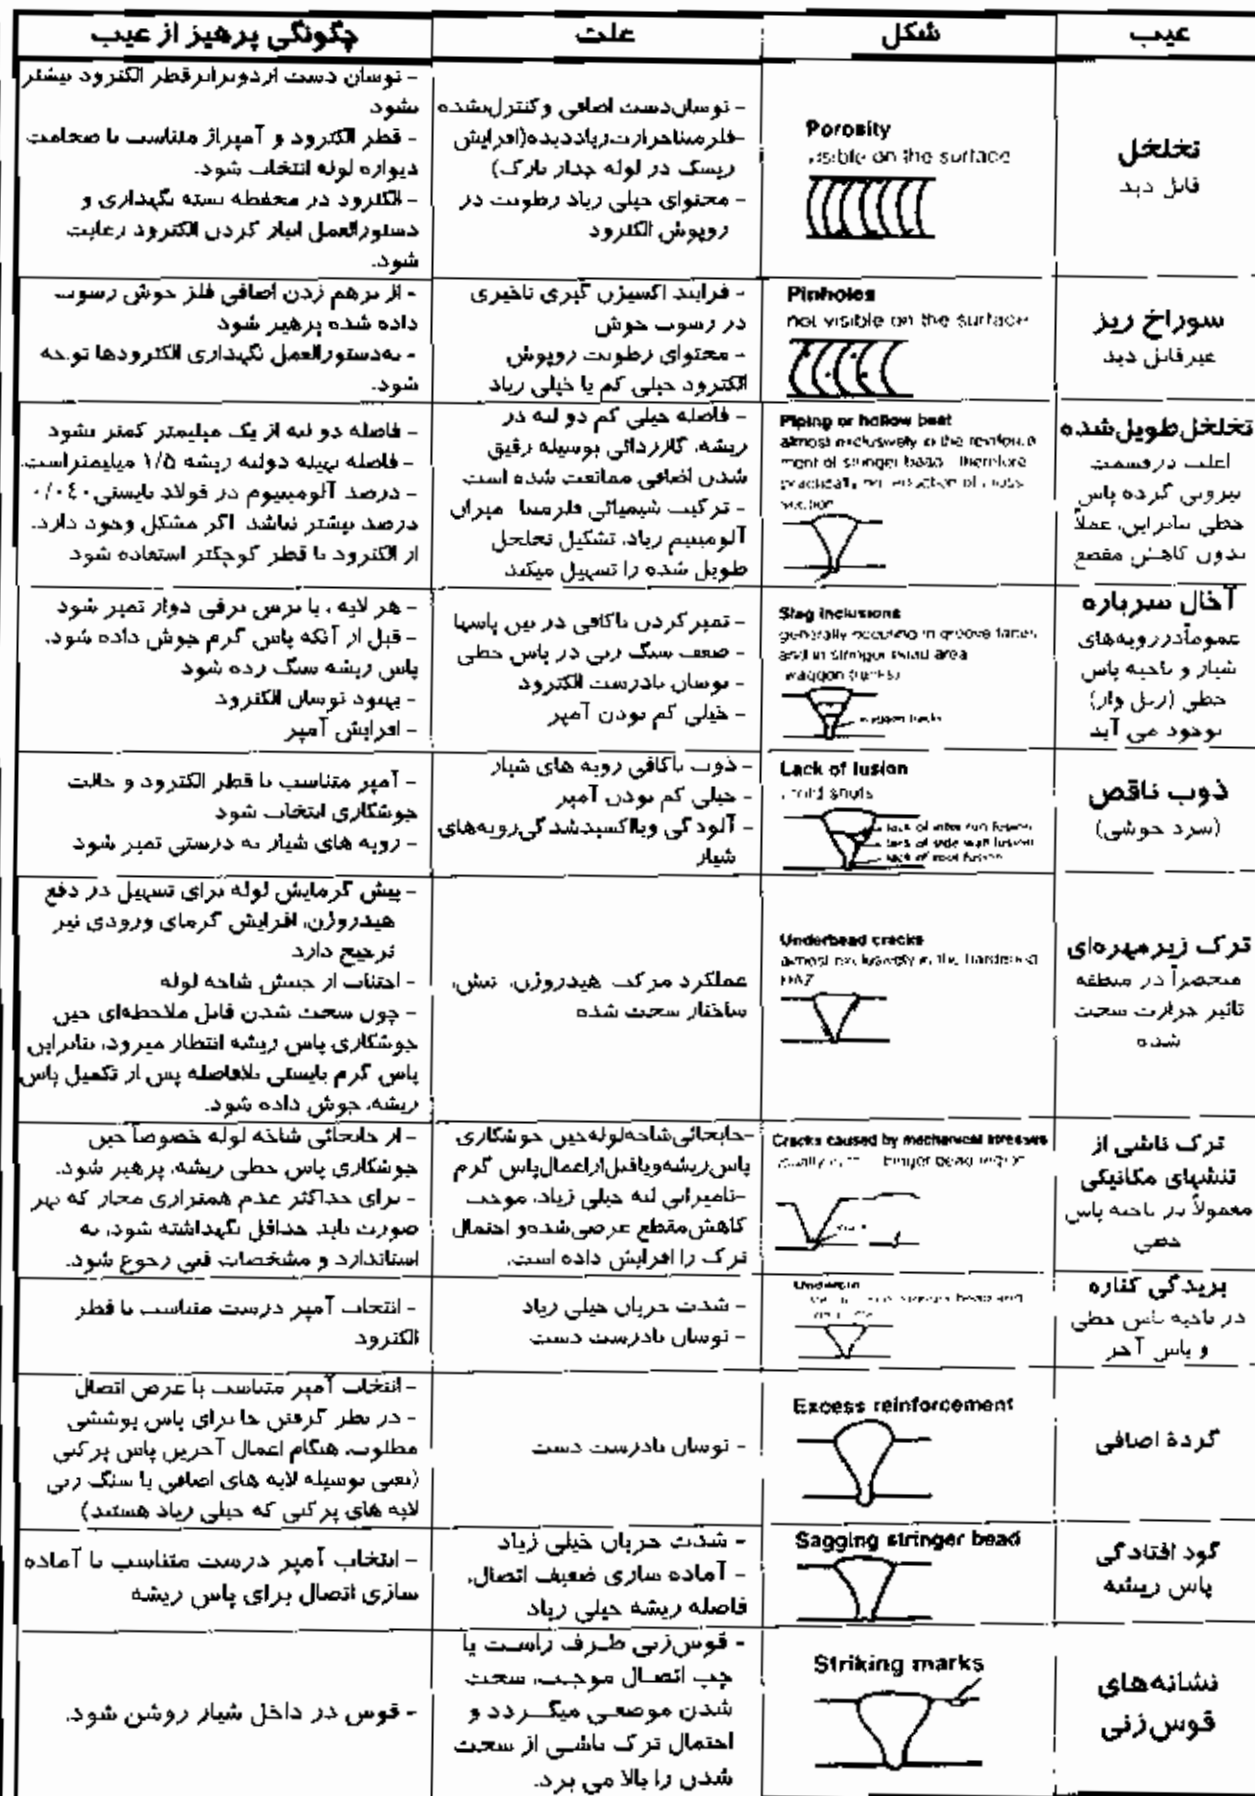 عیب
شکل
علت
چگونگی پرهیز از عیب
تخلخل
قابل دید
Porosity
visible on the surface
- نوسان دست اضافی و کنترل نشده
- فلز مبنا حرارت زیاد دیده (افزایش
ریسک در لوله جدار نازک)
- محتوای خیلی زیاد رطوبت در
روپوش الکترود
- نوسان دست از دو برابر قطر الکترود بیشتر
نشود
- قطر الکترود و آمپراژ متناسب با ضخامت
دیواره لوله انتخاب شود.
- الکترود در محفظه بسته نگهداری و
دستورالعمل انبار کردن الکترود رعایت
شود.
سوراخ ریز
غیرقابل دید
Pinholes
not visible on the surface
- فرایند اکسیژن گیری تاخیری
در رسوب جوش
- محتوای رطوبت روپوش
الکترود خیلی کم یا خیلی زیاد
- از برهم زدن اضافی فلز جوش رسوب
داده شده پرهیز شود
- به دستورالعمل نگهداری الکترودها توجه
شود.
تخلخل طویل شده
اغلب در قسمت
بیرونی گرده پاس
خطی بنابراین، عملاً
بدون کاهش مقطع
Piping or hollow beat
almost exclusively in the reinforce
ment of stringer bead therefore
practically no reduction of cross
section
- فاصله خیلی کم دو لبه در
ریشه، گاززدائی بوسیله رقیق
شدن اضافی ممانعت شده است
- ترکیب شیمیائی فلز مبنا میزان
آلومینیم زیاد، تشکیل تخلخل
طویل شده را تسهیل میکند
- فاصله دو لبه از یک میلیمتر کمتر نشود
- فاصله بهینه دولبه ریشه ۱/۵ میلیمتر است.
- درصد آلومینیوم در فولاد بایستی ۰/۰۴۰
درصد بیشتر نباشد اگر مشکل وجود دارد.
از الکترود با قطر کوچکتر استفاده شود
آخال سرباره
عموماً در رویه های
شیار و ناحیه پاس
خطی (ریل واگن)
بوجود می آید
Slag inclusions
generally occuring in groove faces
and in stringer bead area
waggon tracks
waggon tracks
- تمیز کردن ناکافی در بین پاسها
- ضعف سنگ زنی در پاس خطی
- نوسان نادرست الکترود
- خیلی کم بودن آمپر
- هر لایه ، با برس برقی دوار تمیز شود
- قبل از آنکه پاس گرم جوش داده شود،
پاس ریشه سنگ زده شود
- بهبود نوسان الکترود
- افزایش آمپر
ذوب ناقص
(سرد جوشی)
Lack of fusion
cold shuts
lack of inter run fusion
lack of side wall fusion
lack of root fusion
- ذوب ناکافی رویه های شیار
- خیلی کم بودن آمپر
- آلودگی ویا اکسید شدگی رویه های
شیار
- آمپر متناسب با قطر الکترود و حالت
جوشکاری انتخاب شود
- رویه های شیار به درستی تمیز شود
ترک زیرمهره ای
منحصراً در منطقه
تاثیر حرارت سخت
شده
Underbead cracks
almost exclusively in the hardened
HAZ
عملکرد مرکب هیدروژن، تنش،
ساختار سخت شده
- پیش گرمایش لوله برای تسهیل در دفع
هیدروژن، افزایش گرمای ورودی نیز
ترجیح دارد
- اجتناب از جنبش شاخه لوله
- چون سخت شدن قابل ملاحظه ای حین
جوشکاری پاس ریشه انتظار میرود، بنابراین
پاس گرم بایستی بلافاصله پس از تکمیل پاس
ریشه، جوش داده شود.
ترک ناشی از
تنشهای مکانیکی
معمولاً در ناحیه پاس
خطی
Cracks caused by mechanical stresses
usually in stringer bead region
- جابجائی شاخه لوله حین جوشکاری
پاس ریشه ویا قبل از اعمال پاس گرم
- نامیزانی لبه خیلی زیاد، موجب
کاهش مقطع عرضی شده و احتمال
ترک را افزایش داده است.
- از جابجائی شاخه لوله خصوصاً حین
جوشکاری پاس خطی ریشه، پرهیز شود.
- برای حداکثر عدم همترازی مجاز که بهر
صورت باید حداقل نگهداشته شود، به
استاندارد و مشخصات فنی رجوع شود.
بریدگی کناره
در ناحیه پاس خطی
و پاس آخر
Undercut
- شدت جریان خیلی زیاد
- نوسان نادرست دست
- انتخاب آمپر درست متناسب با قطر
الکترود
گردۀ اضافی
Excess reinforcement
- نوسان نادرست دست
- انتخاب آمپر متناسب با عرض اتصال
- در نظر گرفتن جا برای پاس پوششی
مطلوب، هنگام اعمال آخرین پاس پرکنی
(یعنی بوسیله لایه های اضافی یا سنگ زنی
لایه های پرکنی که خیلی زیاد هستند)
گود افتادگی
پاس ریشه
Sagging stringer bead
- شدت جریان خیلی زیاد
- آماده سازی ضعیف اتصال،
فاصله ریشه خیلی زیاد
- انتخاب آمپر درست متناسب با آماده
سازی اتصال برای پاس ریشه
نشانه های
قوس زنی
Striking marks
- قوس زنی طرف راست یا
چپ اتصال موجب، سخت
شدن موضعی میگردد و
احتمال ترک ناشی از سخت
شدن را بالا می برد.
- قوس در داخل شیار روشن شود.